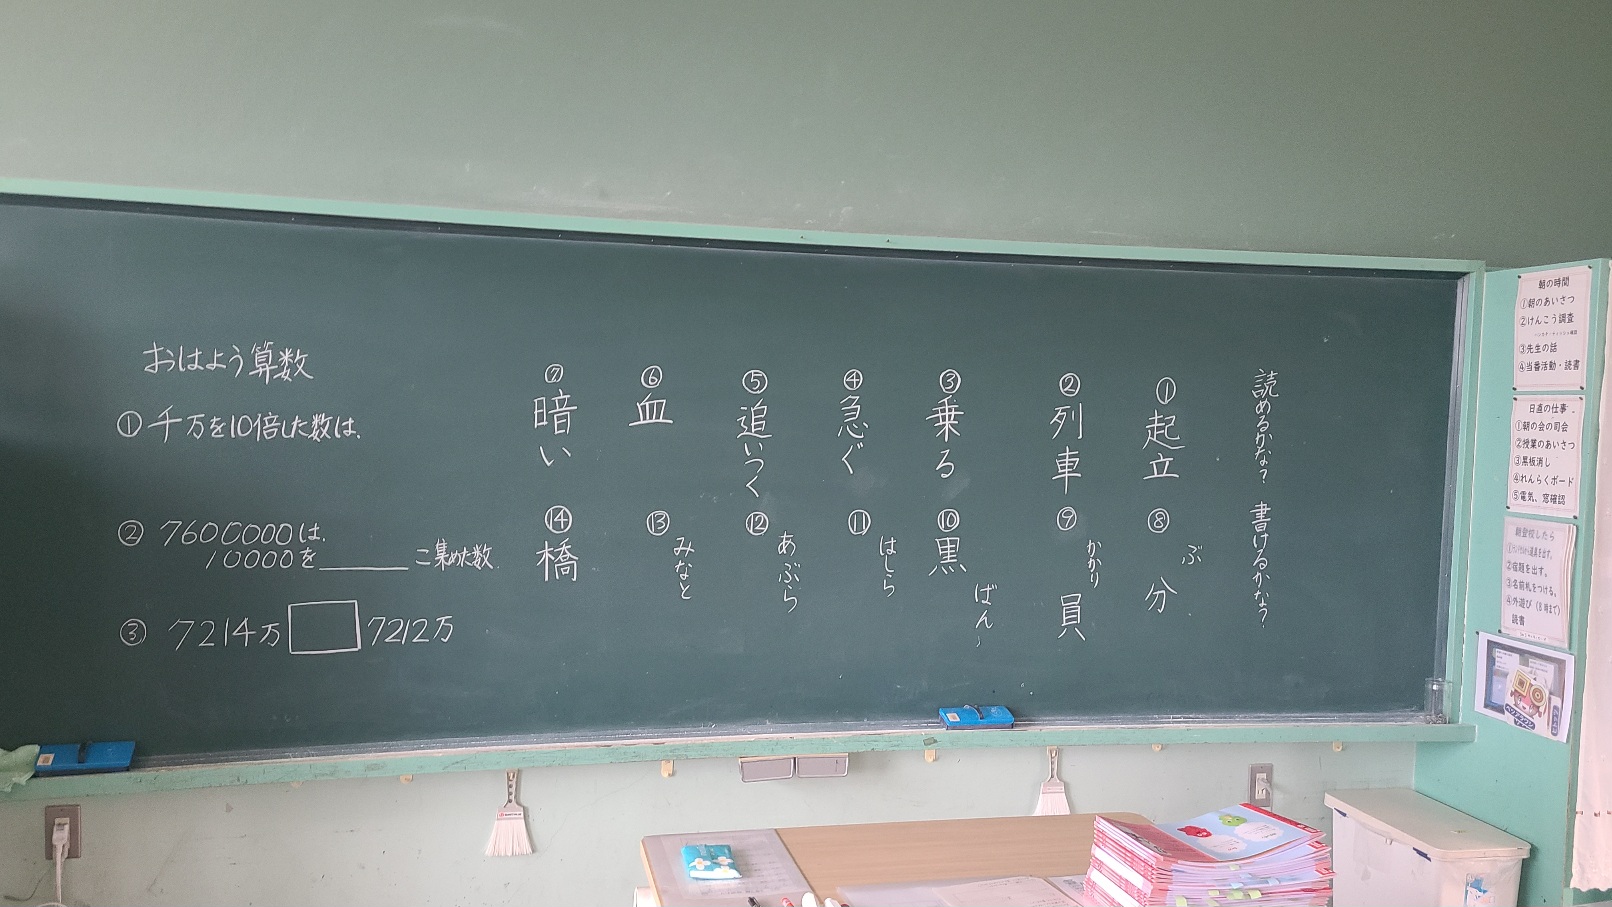 読めるかな? 書けるかな?
①起立
②列車
③乗る
④急ぐ
⑤追いつく
⑥血
⑦暗い
⑧ ぶ 分
⑨ かかり 員
⑩黒 ばん
⑪ はしら
⑫ あぶら
⑬ みなと
⑭橋
おはよう算数
①千万を10倍した数は、
②7600000は、
10000を______こ集めた数
③7214万□7212万
朝の時間
①朝のあいさつ
②けんこう調査
③先生の話
④当番活動・読書
日直の仕事
①朝の会の司会
②授業のあいさつ
③黒板消し
④れんらくボード
⑤電気、窓確認
朝登校したら
②宿題を出す。
③名前札をつける。
④外遊び(8時まで)
読書